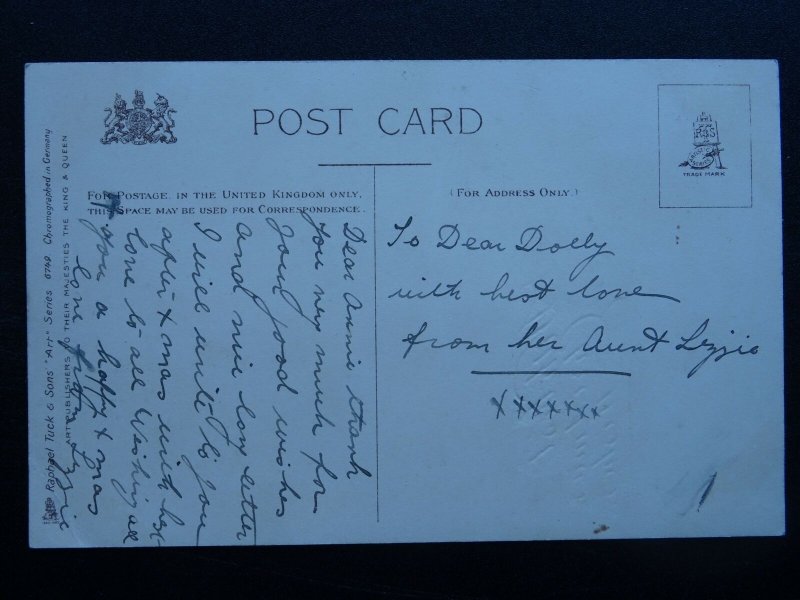 POST CARD
FOR POSTAGE IN THE UNITED KINGDOM ONLY,
THIS SPACE MAY BE USED FOR CORRESPONDENCE.
(FOR ADDRESS ONLY.)
TRADE MARK
Raphael Tuck & Sons "Art" Series 6749. Chromographed in Germany
ART PUBLISHERS TO THEIR MAJESTIES THE KING & QUEEN
Dear Annie thank
you very much for
your good wishes
and nice long letter
I will write to you
after Xmas with best
love to all Wishing all
you a happy Xmas
love from Lizzie
To Dear Dolly
with best love
from her Aunt Lizzie
xxxxxxx